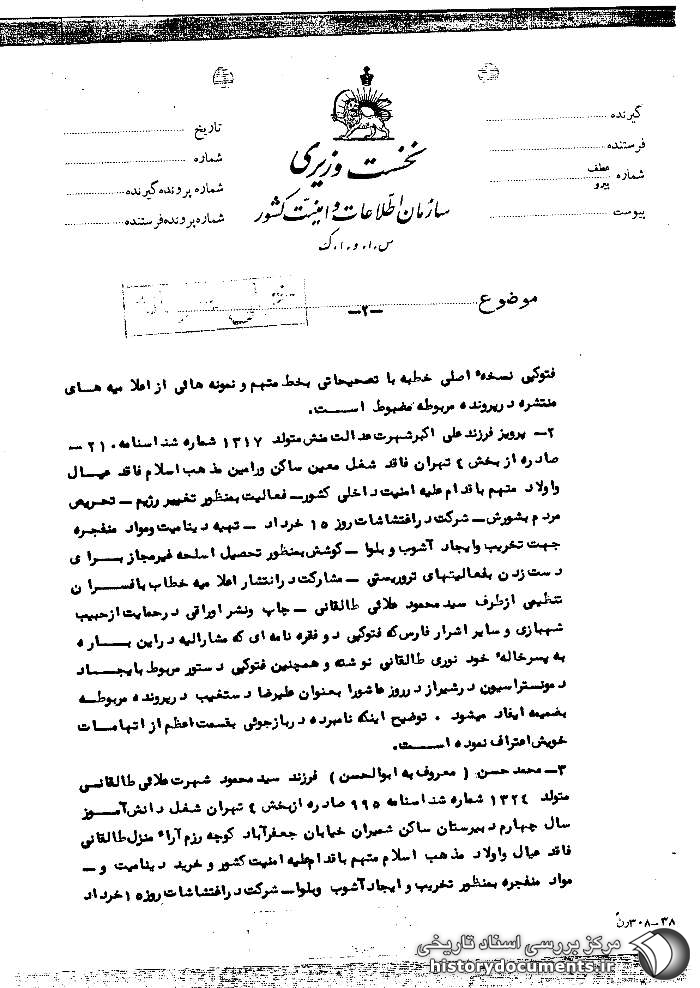 گیرنده
فرستنده
شماره عطف پیرو
پیوست
نخست وزیری
سازمان اطلاعات و امنیت کشور
س.ا.و.ا.ک
تاریخ
شماره
شماره پرونده گیرنده
شماره پرونده فرستنده
موضوع
ـ۲ـ
فتوکپی نسخهٔ اصلی خطبه با تصحیحاتی بخط متهم و نمونه هائی از اعلامیه های
منتشره در پرونده مربوطه مضبوط است.
۲ـ پرویز فرزند علی اکبر شهرت عدالت منش متولد ۱۳۱۷ شماره شناسنامه ۲۱۰ ـ
صادره از بخش ٤ تهران فاقد شغل معین ساکن ورامین مذهب اسلام فاقد عیال
و اولاد متهم باقدام علیه امنیت داخلی کشور ـ فعالیت بمنظور تغییر رژیم ـ تحریص
مردم بشورش ـ شرکت در اغتشاشات روز ۱۵ خرداد ـ تهیه دینامیت و مواد منفجره
جهت تخریب و ایجاد آشوب و بلوا ـ کوشش بمنظور تحصیل اسلحه غیرمجاز برای
دست زدن بفعالیتهای تروریستی ـ مشارکت در انتشار اعلامیه خطاب بافسران
تنظیمی از طرف سید محمود علائی طالقانی ـ چاپ و نشر اوراقی در حمایت از حبیب
شهبازی و سایر اشرار فارس که فتوکپی دو فقره نامه ای که مشارالیه در این باره
به پسرخالهٔ خود نوری طالقانی نوشته و همچنین فتوکپی دستور مربوط بایجاد
دمونستراسیون در شیراز در روز عاشورا بعنوان علیرضا دستغیب در پرونده مربوطه
بضمیمه ایفاد میشود . توضیح اینکه نامبرده در بازجوئی بقسمت اعظم از اتهامات
خویش اعتراف نموده است.
۳ـ محمد حسن ( معروف به ابوالحسن ) فرزند سید محمود شهرت علائی طالقانی
متولد ۱۳۲٤ شماره شناسنامه ۹۹۵ صادره از بخش ٤ تهران شغل دانش آموز
سال چهارم دبیرستان ساکن شمیران خیابان جعفرآباد کوچه رزم آراء منزل طالقانی
فاقد عیال و اولاد مذهب اسلام متهم باقدام علیه امنیت کشور و خرید دینامیت و ـ
مواد منفجره بمنظور تخریب و ایجاد آشوب و بلوا ـ شرکت در اغتشاشات روز ۱۵ خرداد
۳۸ـ۳۰۸
مرکز بررسی اسناد تاریخی
historydocuments.ir